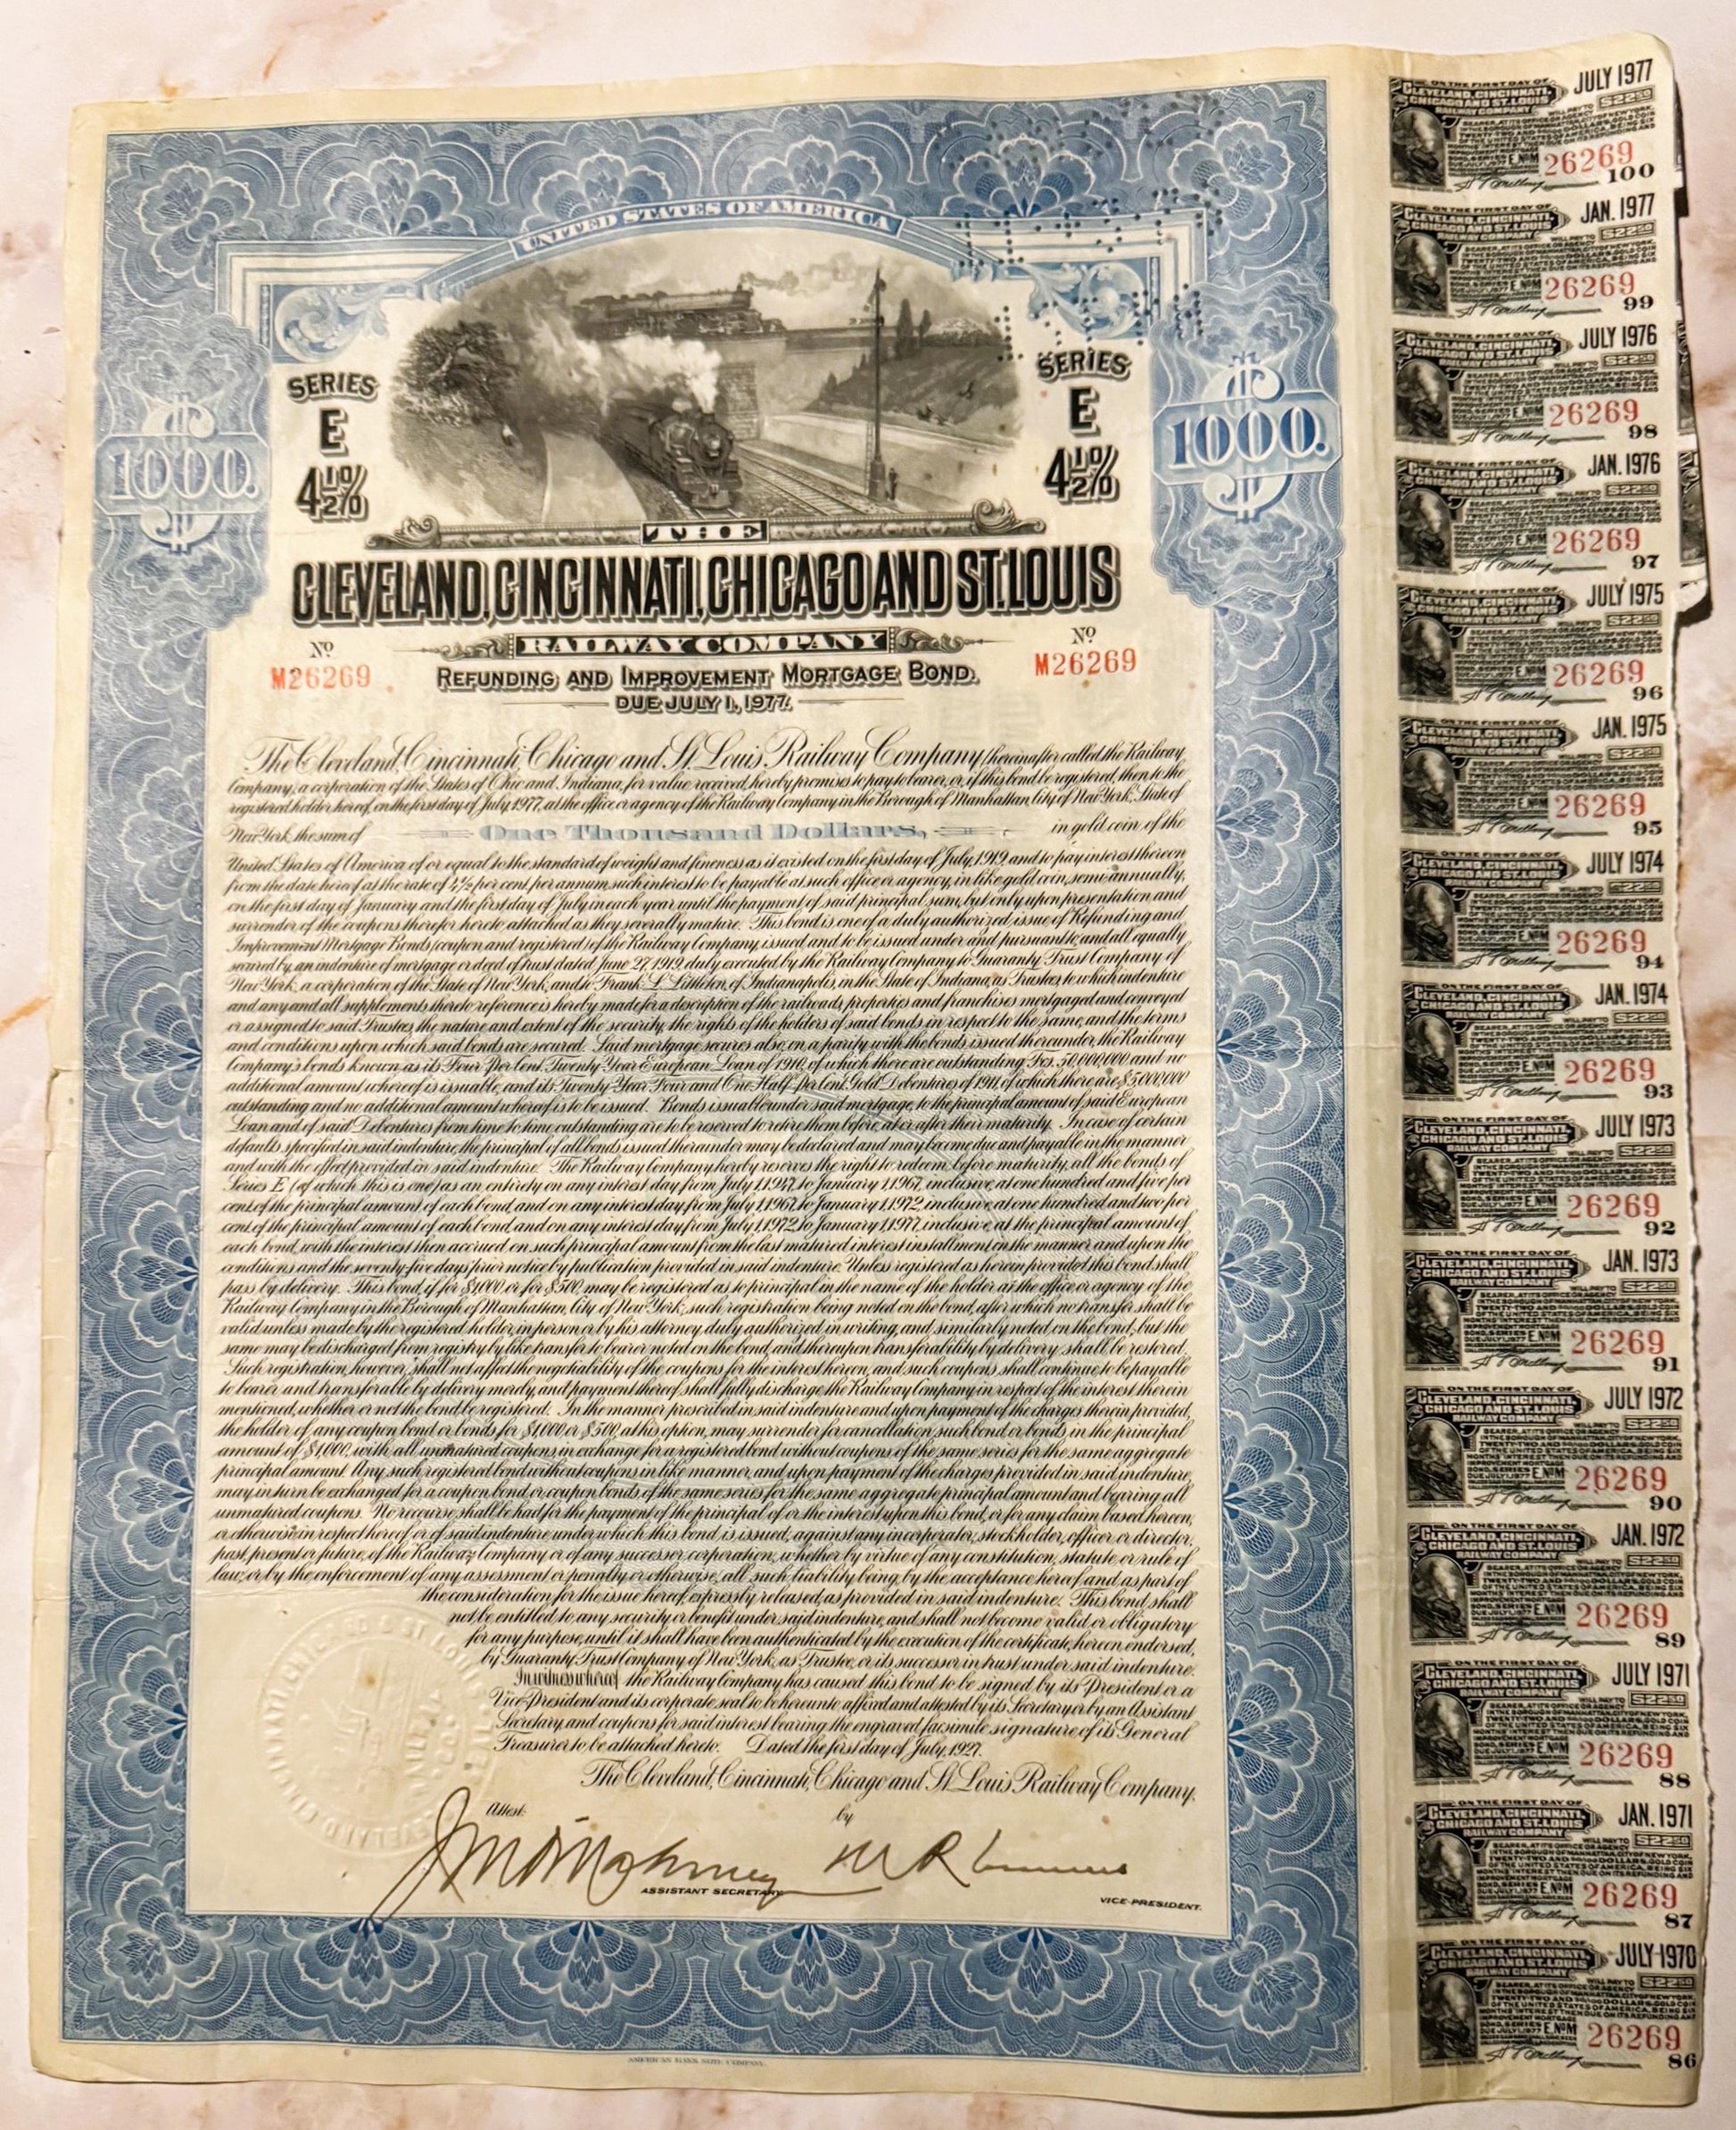 UNITED STATES OF AMERICA
SERIES
E
4½%
SERIES
E
4½%
$1000.
$1000.
THE
CLEVELAND, CINCINNATI, CHICAGO AND ST. LOUIS
RAILWAY COMPANY
Nº
M26269
Nº
M26269
REFUNDING AND IMPROVEMENT MORTGAGE BOND.
DUE JULY 1, 1977.
The Cleveland, Cincinnati, Chicago and St. Louis Railway Company (hereinafter called the Railway
Company), a corporation of the States of Ohio and Indiana, for value received, hereby promises to pay to bearer, or, if this bond be registered, then to the
registered holder hereof, on the first day of July 1977, at the office or agency of the Railway Company in the Borough of Manhattan, City of New York, State of
New York, the sum of One Thousand Dollars, in gold coin of the
United States of America of or equal to the standard of weight and fineness as it existed on the first day of July, 1919, and to pay interest thereon
from the date hereof at the rate of 4½ per cent. per annum, such interest to be payable at such office or agency, in like gold coin, semi-annually,
on the first day of January and the first day of July in each year until the payment of said principal sum, but only upon presentation and
surrender of the coupons therefor hereto attached as they severally mature. This bond is one of a duly authorized issue of Refunding and
Improvement Mortgage Bonds (coupon and registered) of the Railway Company, issued and to be issued under and pursuant to, and all equally
secured by, an indenture of mortgage or deed of trust dated June 27, 1919, duly executed by the Railway Company to Guaranty Trust Company of
New York, a corporation of the State of New York, and to Frank L. Littleton, of Indianapolis, in the State of Indiana, as Trustees, to which indenture
and any and all supplements thereto reference is hereby made for a description of the railroads, properties and franchises mortgaged and conveyed
or assigned to said Trustees, the nature and extent of the security, the rights of the holders of said bonds in respect to the same, and the terms
and conditions upon which said bonds are secured. Said mortgage secures also, on a parity with the bonds issued thereunder, the Railway
Company's bonds known as its Four Per Cent. Twenty-Year European Loan of 1910, of which there are outstanding Fcs. 50,000,000 and no
additional amount whereof is issuable, and its Twenty-Year Four and One-Half Per Cent. Gold Debentures of 1911, of which there are $5,000,000
outstanding and no additional amount whereof is to be issued. Bonds issuable under said mortgage, to the principal amount of said European
Loan and of said Debentures from time to time outstanding are to be reserved to retire them before, at or after their maturity. In case of certain
defaults specified in said indenture, the principal of all bonds issued thereunder may be declared and may become due and payable in the manner
and with the effect provided in said indenture. The Railway Company hereby reserves the right to redeem, before maturity, all the bonds of
Series E (of which this is one) as an entirety on any interest day from July 1, 1947, to January 1, 1967, inclusive, at one hundred and five per
cent. of the principal amount of each bond, and on any interest day from July 1, 1967, to January 1, 1972, inclusive, at one hundred and two per
cent. of the principal amount of each bond, and on any interest day from July 1, 1972, to January 1, 1977, inclusive, at the principal amount of
each bond, with the interest then accrued on such principal amount from the last matured interest installment, in the manner and upon the
conditions and the seventy-five days prior notice by publication provided in said indenture. Unless registered as herein provided this bond shall
pass by delivery. This bond, if for $1,000 or for $500, may be registered as to principal in the name of the holder at the office or agency of the
Railway Company in the Borough of Manhattan, City of New York, such registration being noted on the bond, after which no transfer shall be
valid unless made by the registered holder, in person or by his attorney duly authorized in writing, and similarly noted on the bond, but the
same may be discharged from registry by like transfer to bearer noted on the bond, and thereupon transferability by delivery shall be restored.
Such registration, however, shall not affect the negotiability of the coupons for the interest hereon, and such coupons shall continue to be payable
to bearer and transferable by delivery merely, and payment thereof shall fully discharge the Railway Company in respect of the interest therein
mentioned, whether or not the bond be registered. In the manner prescribed in said indenture and upon payment of the charges therein provided,
the holder of any coupon bond or bonds for $1,000 or $500, at his option, may surrender for cancellation such bond or bonds in the principal
amount of $1,000, with all unmatured coupons, in exchange for a registered bond without coupons of the same series for the same aggregate
principal amount. Any such registered bond without coupons in like manner, and upon payment of the charges provided in said indenture,
may in turn be exchanged for a coupon bond or coupon bonds of the same series for the same aggregate principal amount and bearing all
unmatured coupons. No recourse shall be had for the payment of the principal of or the interest upon this bond, or for any claim based hereon,
or otherwise in respect hereof or of said indenture under which this bond is issued, against any incorporator, stockholder, officer or director,
past, present or future, of the Railway Company or of any successor corporation, whether by virtue of any constitution, statute or rule of
law, or by the enforcement of any assessment or penalty or otherwise, all such liability being, by the acceptance hereof and as part of
the consideration for the issue hereof, expressly released, as provided in said indenture. This bond shall
not be entitled to any security or benefit under said indenture, and shall not become valid or obligatory
for any purpose, until it shall have been authenticated by the execution of the certificate, hereon endorsed,
by Guaranty Trust Company of New York, as Trustee, or its successor in trust under said indenture.
In witness whereof the Railway Company has caused this bond to be signed by its President or a
Vice-President and its corporate seal to be hereunto affixed and attested by its Secretary or by an Assistant
Secretary, and coupons for said interest bearing the engraved facsimile signature of its General
Treasurer to be attached hereto. Dated the first day of July, 1927.
The Cleveland, Cincinnati, Chicago and St. Louis Railway Company,
Attest: by
ASSISTANT SECRETARY
VICE-PRESIDENT.
AMERICAN BANK NOTE COMPANY.
ON THE FIRST DAY OF JULY 1977
CLEVELAND, CINCINNATI,
CHICAGO AND ST. LOUIS
RAILWAY COMPANY
WILL PAY TO
$22.50
E. NºM 26269
100
ON THE FIRST DAY OF JAN. 1977
CLEVELAND, CINCINNATI,
CHICAGO AND ST. LOUIS
RAILWAY COMPANY
$22.50
E. NºM 26269
99
ON THE FIRST DAY OF JULY 1976
CLEVELAND, CINCINNATI,
CHICAGO AND ST. LOUIS
RAILWAY COMPANY
$22.50
E. NºM 26269
98
ON THE FIRST DAY OF JAN. 1976
CLEVELAND, CINCINNATI,
CHICAGO AND ST. LOUIS
RAILWAY COMPANY
$22.50
E. NºM 26269
97
ON THE FIRST DAY OF JULY 1975
CLEVELAND, CINCINNATI,
CHICAGO AND ST. LOUIS
RAILWAY COMPANY
$22.50
E. NºM 26269
96
ON THE FIRST DAY OF JAN. 1975
CLEVELAND, CINCINNATI,
CHICAGO AND ST. LOUIS
RAILWAY COMPANY
$22.50
E. NºM 26269
95
ON THE FIRST DAY OF JULY 1974
CLEVELAND, CINCINNATI,
CHICAGO AND ST. LOUIS
RAILWAY COMPANY
$22.50
E. NºM 26269
94
ON THE FIRST DAY OF JAN. 1974
CLEVELAND, CINCINNATI,
CHICAGO AND ST. LOUIS
RAILWAY COMPANY
$22.50
E. NºM 26269
93
ON THE FIRST DAY OF JULY 1973
CLEVELAND, CINCINNATI,
CHICAGO AND ST. LOUIS
RAILWAY COMPANY
$22.50
E. NºM 26269
92
ON THE FIRST DAY OF JAN. 1973
CLEVELAND, CINCINNATI,
CHICAGO AND ST. LOUIS
RAILWAY COMPANY
$22.50
E. NºM 26269
91
ON THE FIRST DAY OF JULY 1972
CLEVELAND, CINCINNATI,
CHICAGO AND ST. LOUIS
RAILWAY COMPANY
$22.50
E. NºM 26269
90
ON THE FIRST DAY OF JAN. 1972
CLEVELAND, CINCINNATI,
CHICAGO AND ST. LOUIS
RAILWAY COMPANY
$22.50
E. NºM 26269
89
ON THE FIRST DAY OF JULY 1971
CLEVELAND, CINCINNATI,
CHICAGO AND ST. LOUIS
RAILWAY COMPANY
WILL PAY TO
$22.50
E. NºM 26269
88
ON THE FIRST DAY OF JAN. 1971
CLEVELAND, CINCINNATI,
CHICAGO AND ST. LOUIS
RAILWAY COMPANY
WILL PAY TO
$22.50
E. NºM 26269
87
ON THE FIRST DAY OF JULY 1970
CLEVELAND, CINCINNATI,
CHICAGO AND ST. LOUIS
RAILWAY COMPANY
WILL PAY TO
$22.50
E. NºM 26269
86